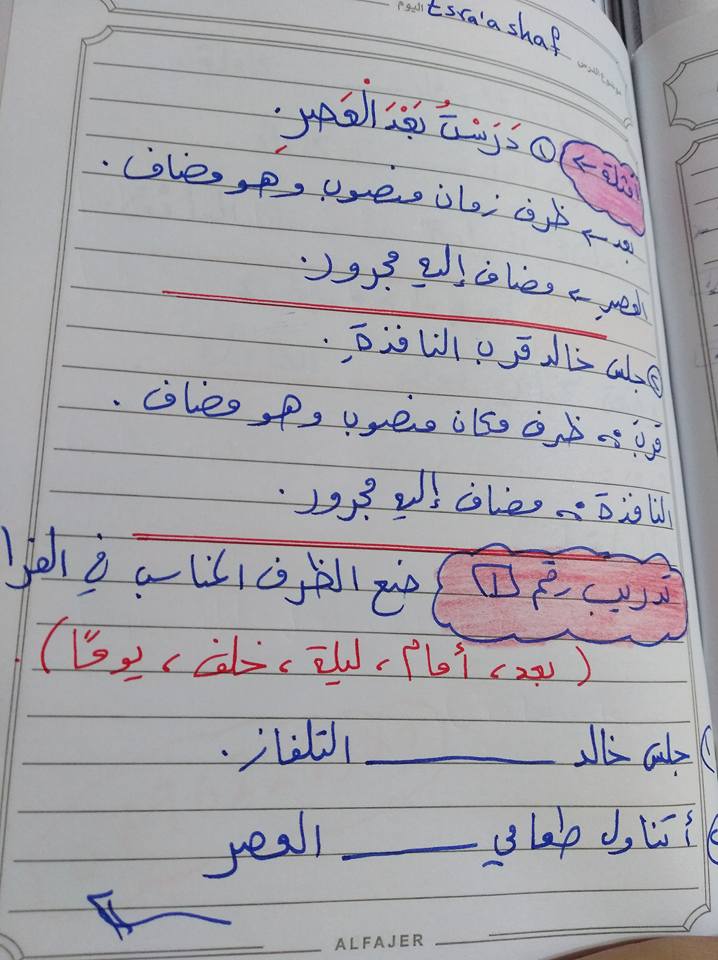 اليوم Esra'a shaf
موضوع الدرس
أمثلة ← ① دَرَسْتُ بَعْدَ الْعَصرِ.
بعد ← ظرف زمان منصوب وهو مضاف.
العصرِ ← مضاف إليه مجرور.
② جلس خالد قرب النافذةِ.
قربَ : ظرف مكان منصوب وهو مضاف.
النافذة : مضاف إليه مجرور.
تدريب رقم 1 ضع الظرف المناسب في الفرا
( بعد ، أمام ، ليلة ، خلف ، يومًا ).
١) جلس خالد ______ التلفاز.
أتناول طعامي ______ العصر
ALFAJER